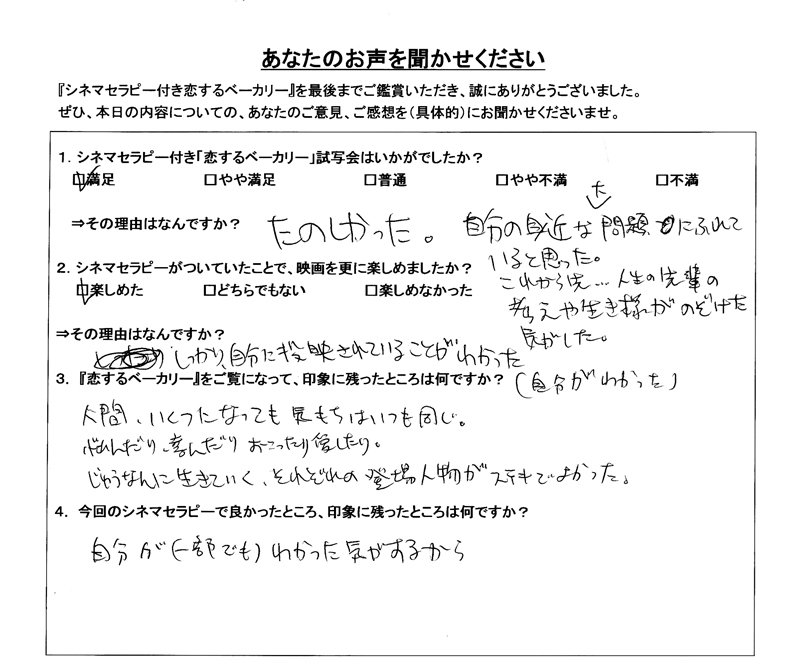 あなたのお声を聞かせください
『シネマセラピー付き恋するベーカリー』を最後までご鑑賞いただき、誠にありがとうございました。
ぜひ、本日の内容についての、あなたのご意見、ご感想を（具体的）にお聞かせくださいませ。
1．シネマセラピー付き「恋するベーカリー」試写会はいかがでしたか？
☑満足 □やや満足 □普通 □やや不満 □不満
⇒その理由はなんですか？ たのしかった。 自分の身近な問題にふれて
た
いると思った。
これから先…人生の先輩の
考えや生き様がのぞけた
気がした。
2．シネマセラピーがついていたことで、映画を更に楽しめましたか？
☑楽しめた □どちらでもない □楽しめなかった
⇒その理由はなんですか？
しっかり、自分に投映されていることがわかった
（自分がわかった）
3．『恋するベーカリー』をご覧になって、印象に残ったところは何ですか？
人間、いくつになっても気もちはいつも同じ。
悩んだり、喜んだり おこったり愛したり。
じゅうなんに生きていく、それぞれの登場人物がステキでよかった。
4．今回のシネマセラピーで良かったところ、印象に残ったところは何ですか？
自分が（一部でも）わかった気がするから